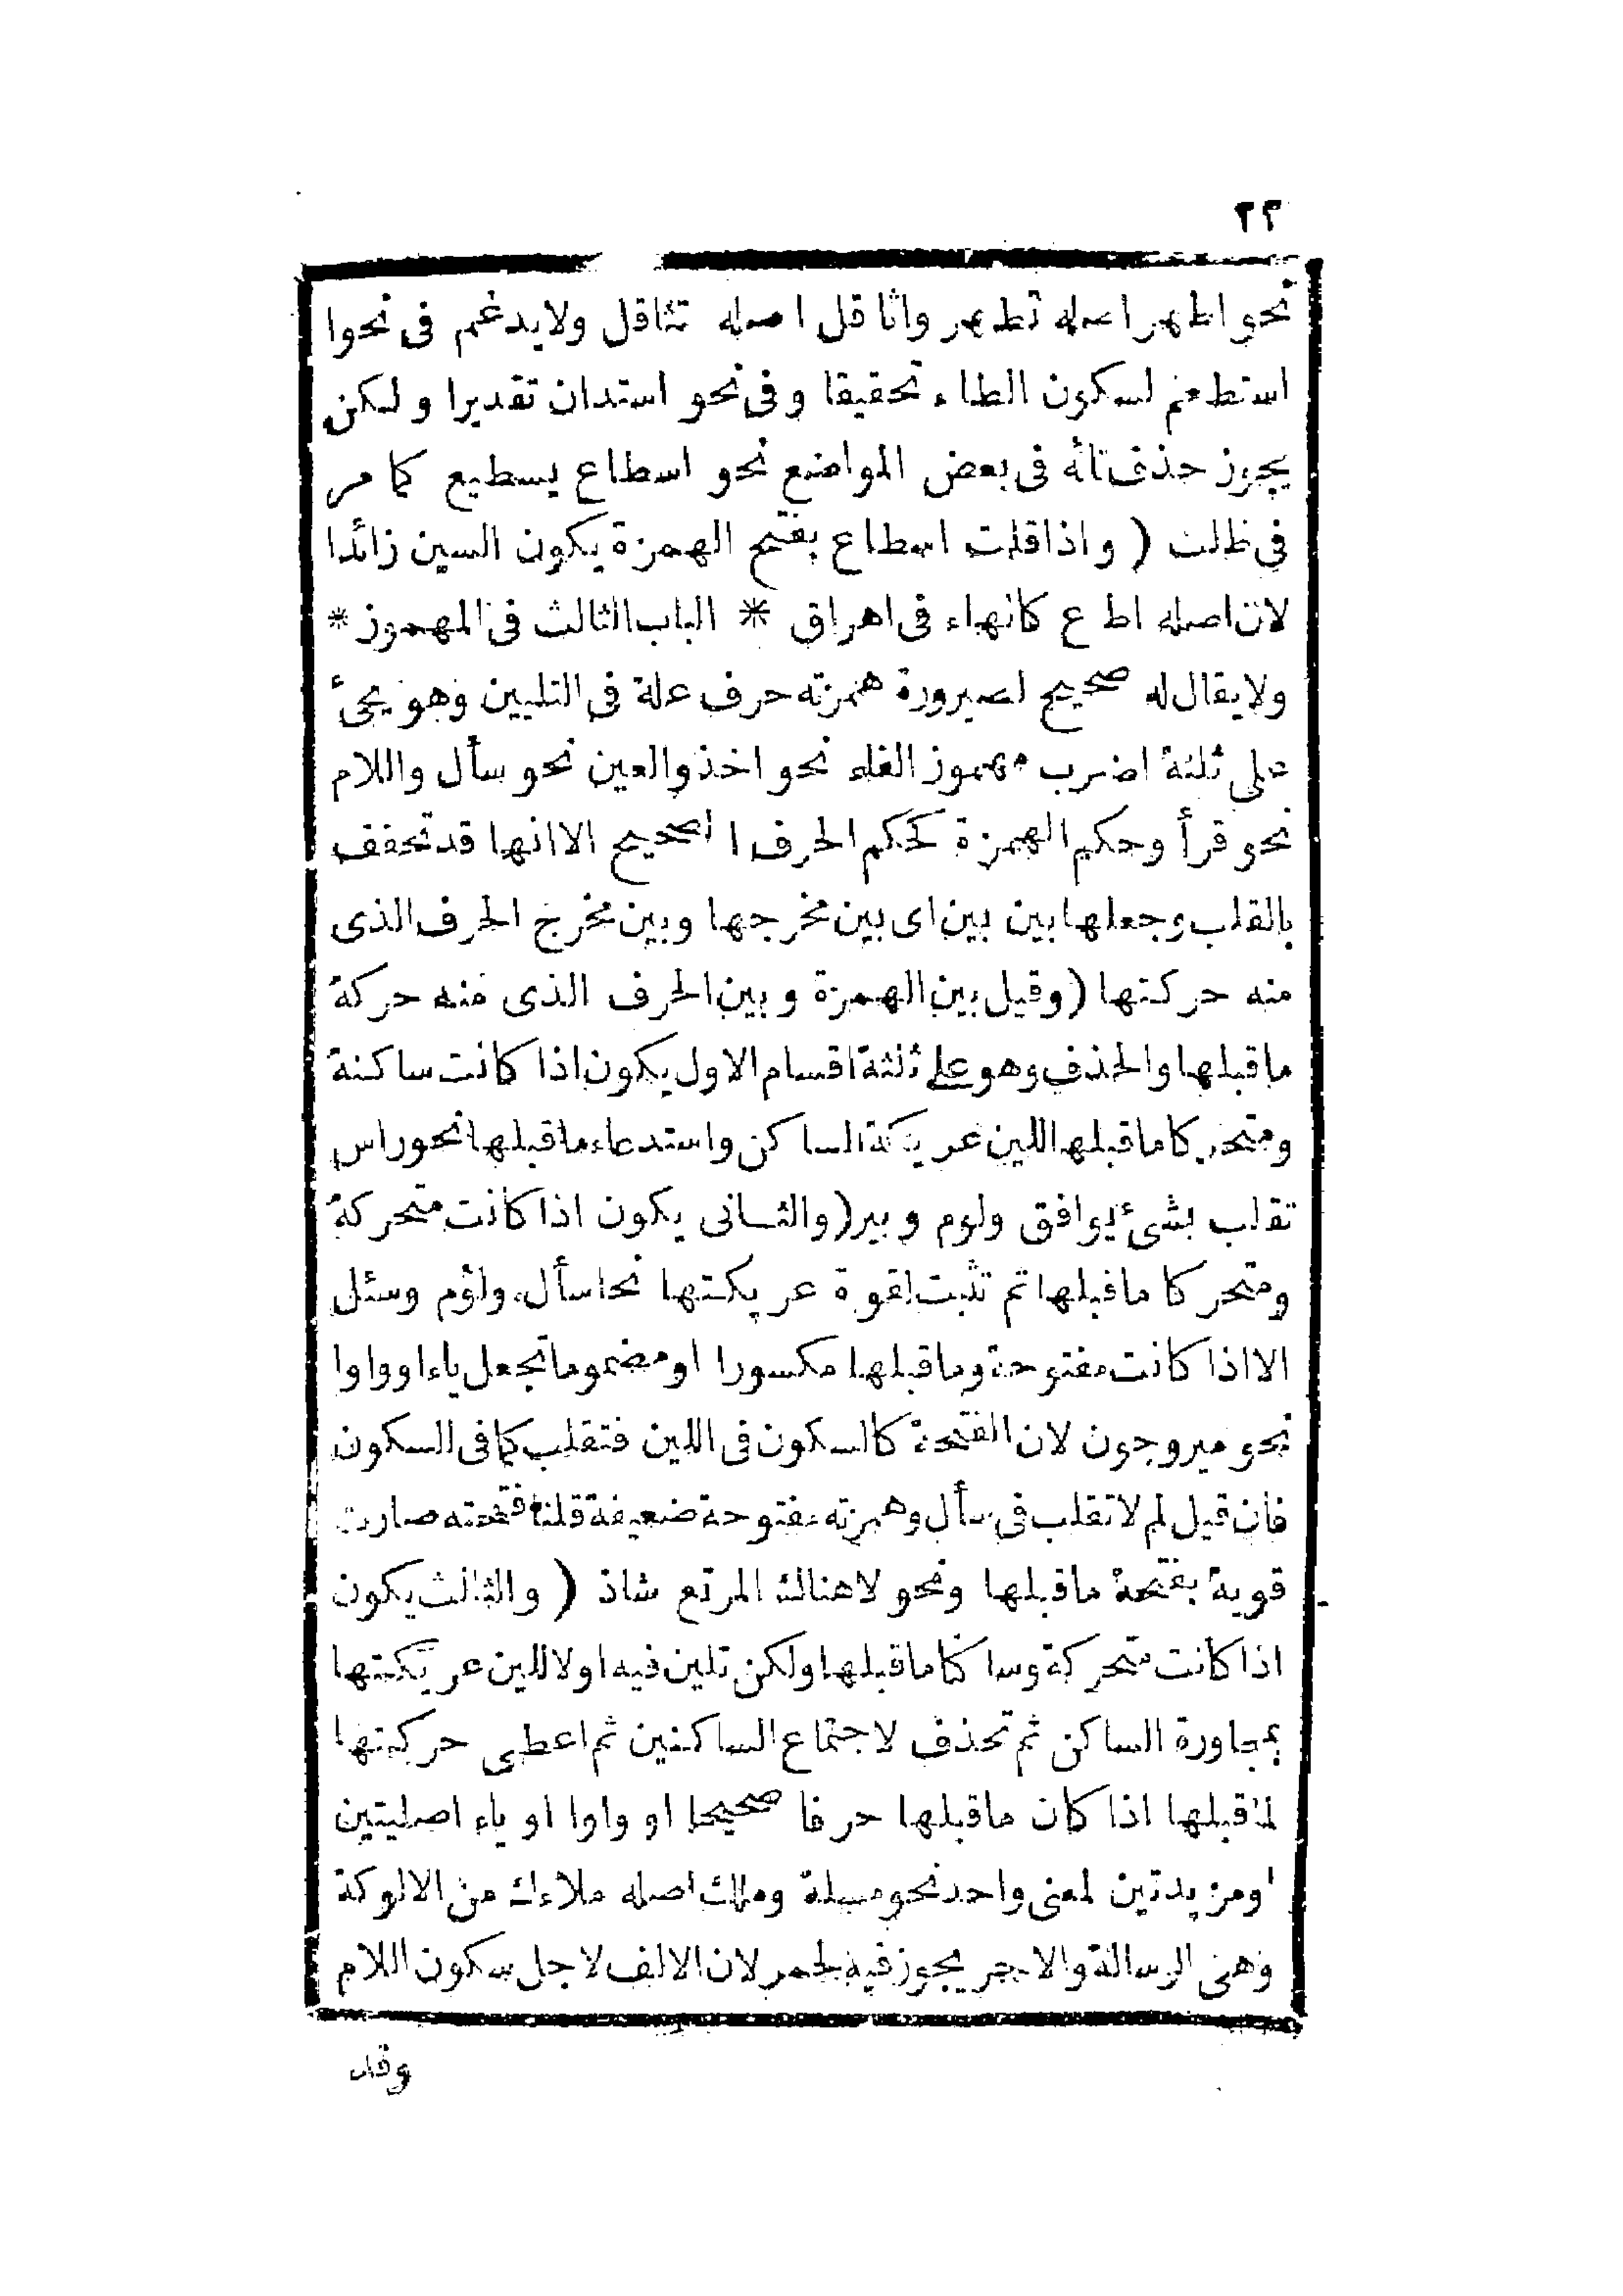 ٢٢
نحو اطهر اصله تطهر واثاقل اصله تثاقل ولايدغم فى نحوا
استطعم لسكون الطاء تحقيقا وفى نحو استدان تقديرا ولكن
يجوز حذف تائه فى بعض المواضع نحو اسطاع يسطيع كما مر
فى ظلت ( واذا قلت اسطاع بفتح الهمزة يكون السين زائدا
لان اصله اطاع كالهاء فى اهراق * الباب الثالث فى المهموز *
ولايقال له صحيح لصيرورة همزته حرف علة فى التليين وهو يجئ
على ثلثة اضرب مهموز الفاء نحو اخذ والعين نحو سأل واللام
نحو قرأ وحكم الهمزة كحكم الحرف الصحيح الا انها قد تخفف
بالقلب وجعلها بين بين اى بين مخرجها وبين مخرج الحرف الذى
منه حركتها ( وقيل بين الهمزة وبين الحرف الذى منه حركة
ماقبلها والحذف وهو على ثلثة اقسام الاول يكون اذا كانت ساكنة
ومتحركا ماقبلها اللين عريكة الساكن واستدعاء ماقبلها نحو راس
تقلب بشئ يوافق ولوم وبير ( والثانى يكون اذا كانت متحركة
ومتحركا ماقبلها ثم تثبت لقوة عريكتها نحا سأل ولؤم وسئل
الا اذا كانت مفتوحة وماقبلها مكسورا او مضموما تجعل ياء او واوا
نحو مير وجون لان الفتحة كالسكون فى اللين فتقلب كما فى السكون
فان قيل لم لا تقلب فى سأل وهمزته مفتوحة ضعيفة قلنا فتحته صارت
قوية بفتحة ماقبلها ونحو لا هناك المرتع شاذ ( والثالث يكون
اذا كانت متحركة وساكنا ماقبلها ولكن تلين فيه اولا للين عريكتها
بمجاورة الساكن ثم تحذف لاجتماع الساكنين ثم اعطى حركتها
لماقبلها اذا كان ماقبلها حرفا صحيحا او واوا او ياء اصليتين
اومزيدتين لمعنى واحد نحو مسلة وملك اصله ملاءك من الالوكة
وهى الرسالة والاحمر يجوز فيه لحمر لان الالف لاجل سكون اللام
وقد